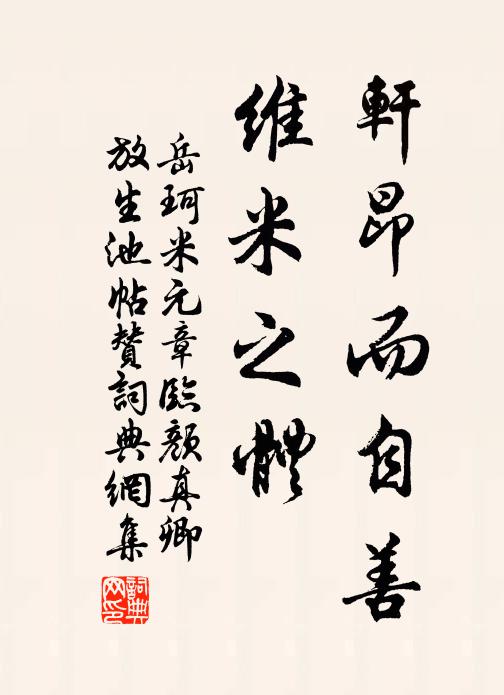 軒昂而自善
維米之體
岳珂米元章臨顏真卿
放生池帖贊詞典網集
詞典網印